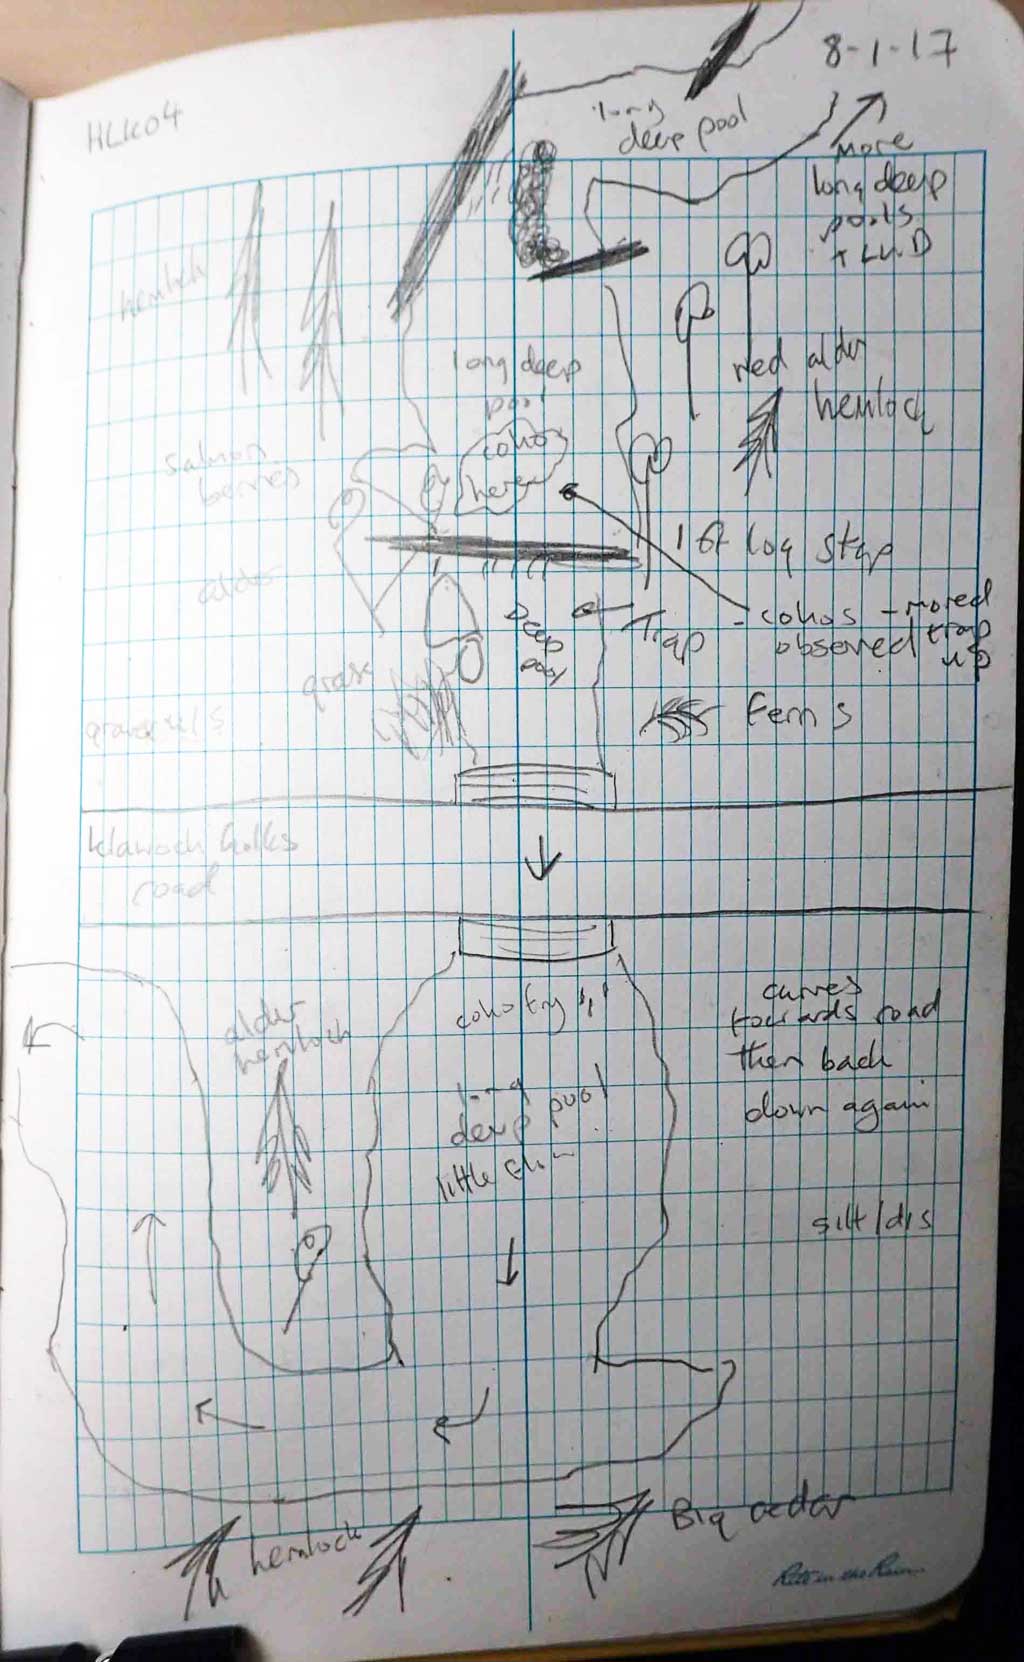 8-1-17
HLK04
long
deep pool
More
long deep
pools
+ LWD
hemloch
long deep
pool
red alder
hemlock
cohos
here
salmon
berries
1st log step
alder
Deep
pool
Trap
- cohos - moved
observed trap
up
grass
Ferns
Klawock Hollis
road
coho fry
alder
hemloch
curves
towards road
then back
down again
long
deep pool
little
silt/
hemlock
Big cedar
Rite in the Rain